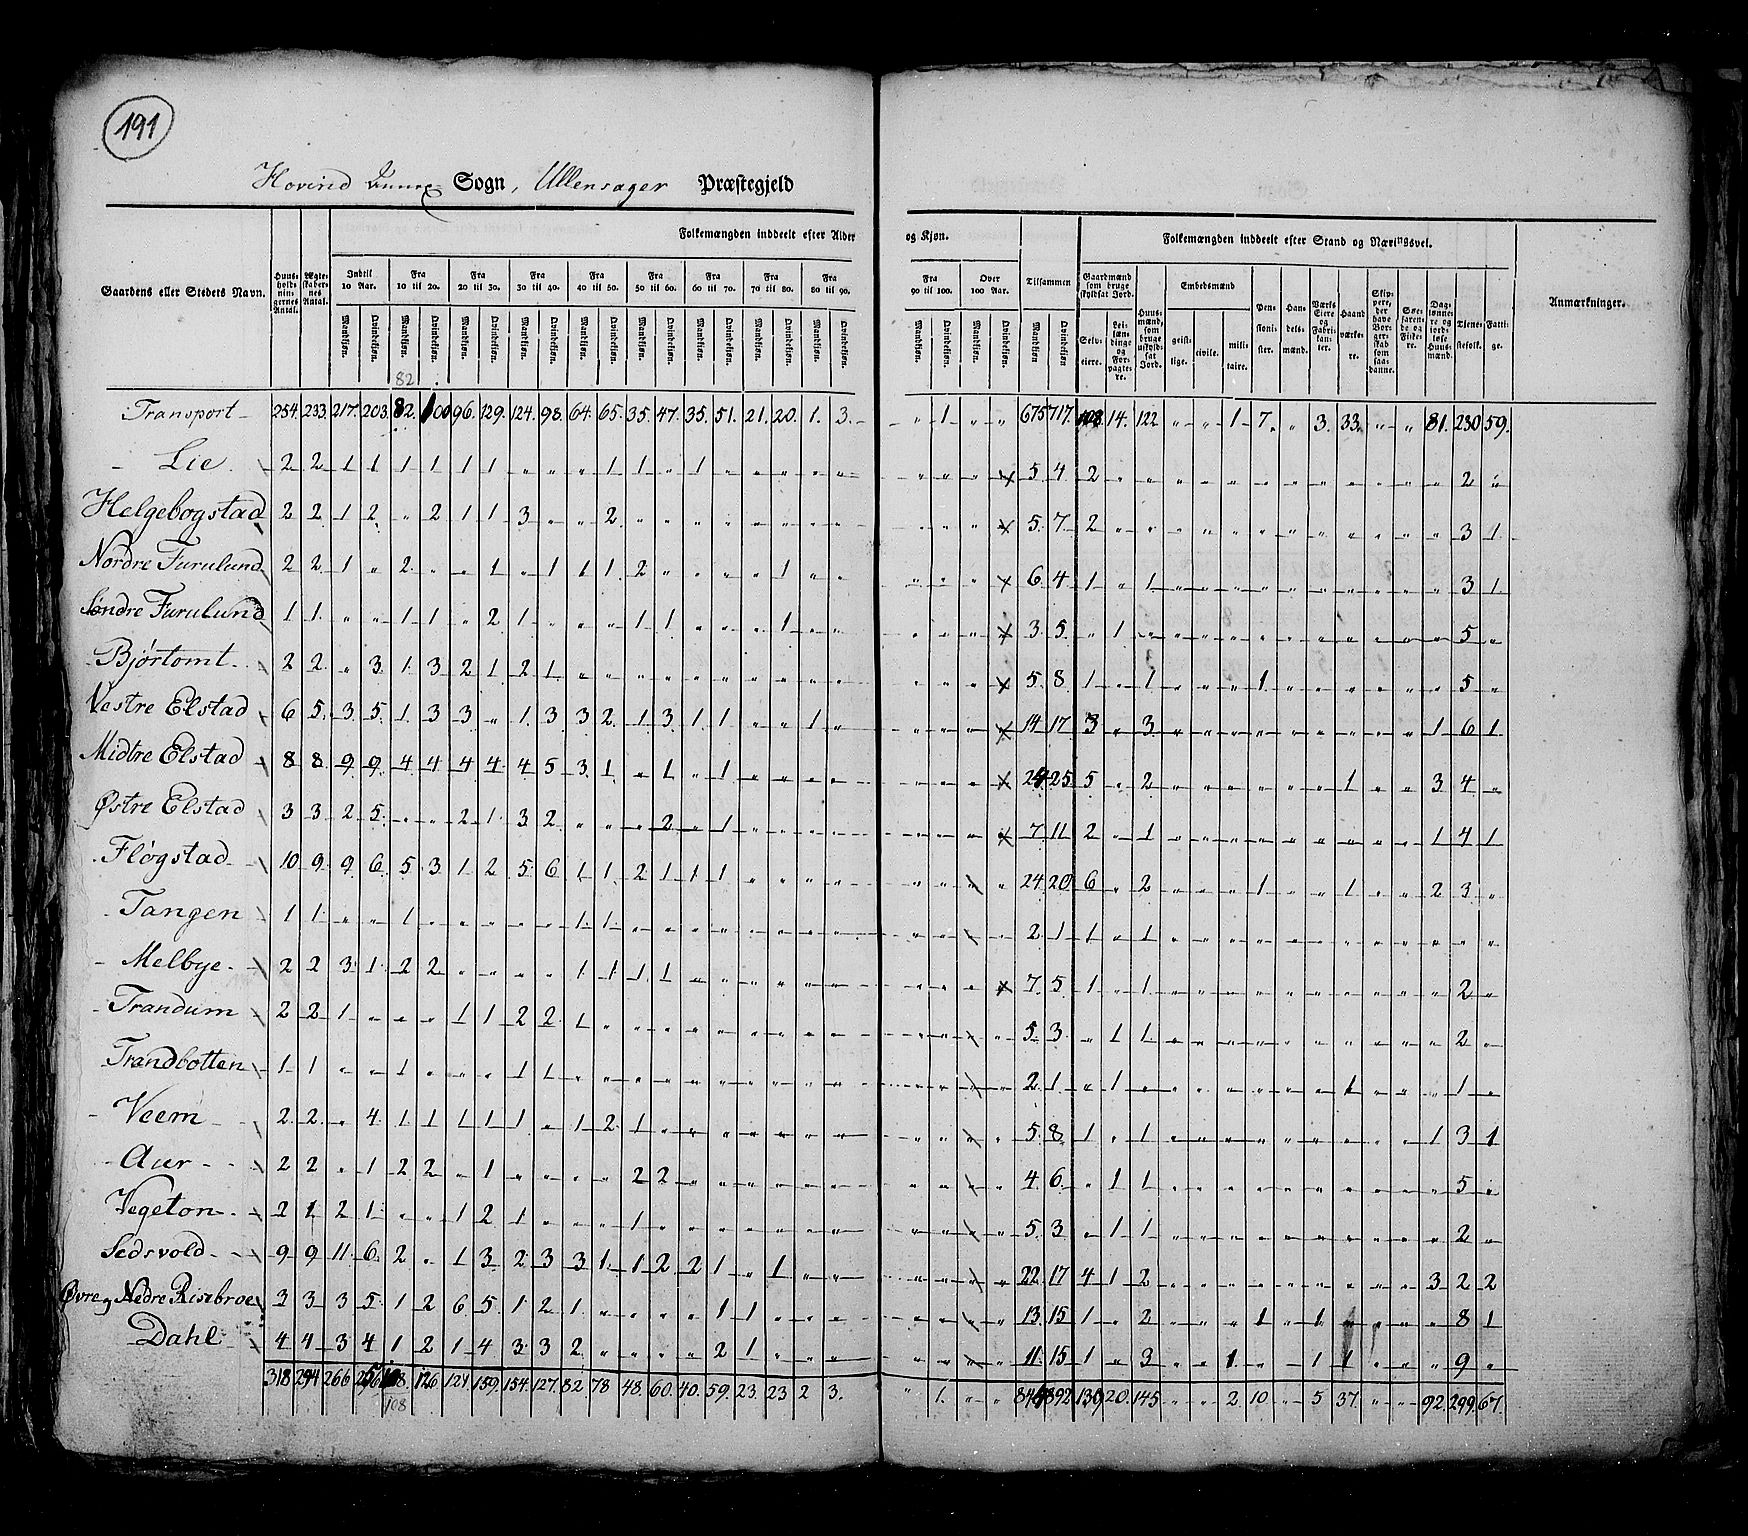 191
Hovind Sogn, Ullensager Præstegjeld
Folkemængden inddeelt efter Alder og Kjøn. Folkemængden inddeelt efter Stand og Næringsvei.
Gaardens eller Stedets Navn. Huusholdningernes Antal. Ægteskabernes Antal. Indtil 10 Aar. Fra 10 til 20. Fra 20 til 30. Fra 30 til 40. Fra 40 til 50. Fra 50 til 60. Fra 60 til 70. Fra 70 til 80. Fra 80 til 90. Fra 90 til 100. Over 100 Aar. Tilsammen Gaardmænd som bruge skyldsat Jord. Huusmænd, som bruge uskyldsat Jord. Embedsmænd Pensionister. Handelsmænd. Værks Eiere og Fabrikanter. Haandværkere. Skippere, der have Borgerskab som saadanne. Søefarende og Fiskere. Daglønnere og jordløse Huusmænd. Tjenestefolk. Fattige. Anmærkninger.
Mandkjøn. Qvindekjøn. Mandkjøn. Qvindekjøn. Mandkjøn. Qvindekjøn. Mandkjøn. Qvindekjøn. Mandkjøn. Qvindekjøn. Mandkjøn. Qvindekjøn. Mandkjøn. Qvindekjøn. Mandkjøn. Qvindekjøn. Mandkjøn. Qvindekjøn. Mandkjøn. Qvindekjøn. Mandkjøn. Qvindekjøn. Mandkjøn Qvindekjøn. Selveiere. Leilændinge og Forpagtere. geistlige. civile. militaire.
82
Transport 254. 233. 217. 203. 82. 100 96. 129. 124. 98. 64. 65. 35. 47. 35. 51. 21. 20. 1. 3. " 1 " " 675 717. 108. 14. 122 " " 1 7. " 3. 33. " " 81. 230 59.
Lie. 2 2 1 1 1 1 1 1 " " " 1 1 " 1 " " " " " " " " 5 4 2 " " " " " " " " " " " " 2 "
Helgebogstad 2 2 1 2 " 2 1 1 3 " " 2 " " " " " " " " " " " 5. 7. 2 " " " " " " " " " " " " 3 1
Nordre Furulund 2 2 1 " 2 " " 1 " 1 1 1 2 " " " " 1 " " " " " 6 4 1 " 1 " " " " " " " " " " 3 1
Søndre Furulund 1 1 " " 1 1 " 2 1 " " " 1 1 " " " 1 " " " " " 3. 5. " 1 " " " " " " " " " " " 5 "
Bjørtomt 2 2 " 3 1 3 2 1 2 1 " " " " " " " " " " " " " 5. 8. 1 " 1 " " " 1 " " " " " " 5 "
Vestre Elstad 6 5 3 5 1 3 3 " 1 3 3 2 1 3 1 1 " " 1 " " " " 14 17 3 " 3 " " " " " " " " " 1 6 1
Midtre Elstad 8 8 9 9 4 4 4 4 4 5 3 1 " 1 " 1 " " " " " " " 24 25 5 " 2 " " " " " " 1 " " 3 4 "
Østre Elstad 3 3 2 5 " " 2 1 3 2 " " " 2 " 1 " " " " " " " 7. 11 2 " 1 " " " " " " " " " 1 4 1
Fløgstad 10 9 9 6 5 3 1 2 5 6 1 1 2 1 1 1 " " " " " " " 24 20 6 " 2 " " " 1 " " 1 " " 2 3 "
Tangen 1 1 " " 1 " " " " " 1 1 " " " " " " " " " " " " 2 1 1 " 1 " " " " " " " " " " " "
Melbye 2 2 3 1 2 2 " " " " 1 1 1 1 " " " " " " " " " 7. 5 1 " 1 " " " " " " " " " " 2 "
Trandum 2 2 1 " " " 1 1 2 2 1 " " " " " " " " " " " " " 5 3 " 1 1 " " " " " " " " " " 2 "
Trandbotten 1 1 " " 1 " " " 1 1 " " " " " " " " " " " " " " 2 1 " 1 " " " " " " " 1 " " " 1 "
Veem 2 2 " 4 1 1 1 1 1 " 1 2 1 " " " " " " " " " " " 5. 8 1 " 1 " " " " " " " " " 1 3 1
Aur 2 2 " 1 2 2 " 1 " " " " 2 2 " " " " " " " " " " 4 6 " 1 1 " " " " " " " " " " 5 "
Vegeton 2 1 2 1 " " 1 2 1 " " " 1 " " " " " " " " " " " 5 3 " 1 1 " " " " " " " " " " 2 "
Sedsvold 9 9 11 6 2 " 1 3 2 3 3 1 1 2 2 1 " 1 " " " " " " 22 17 4 1 2 " " " " " " " " " 3 2 2
Øvre og Nedre Risebroe 3 3 3 5 1 2 6 5 1 2 1 " " " " 1 1 " " " " " " " 13 15 1 " 2 " " " 1 " 1 " " " " 8 1
Dahl 4 4 3 4 1 2 1 4 3 3 2 " " " " 2 1 " " " " " " " 11 15 1 " 3 " " 1 " " 1 1 " " " 9 "
318 294 266 256 108. 126 121 159. 154. 127. 82. 78 48. 60. 40. 59. 23 23 2 3. " 1. " " 844 892 130 20. 145 " " 2 10 " 5 37. " " 92. 299. 67.
108